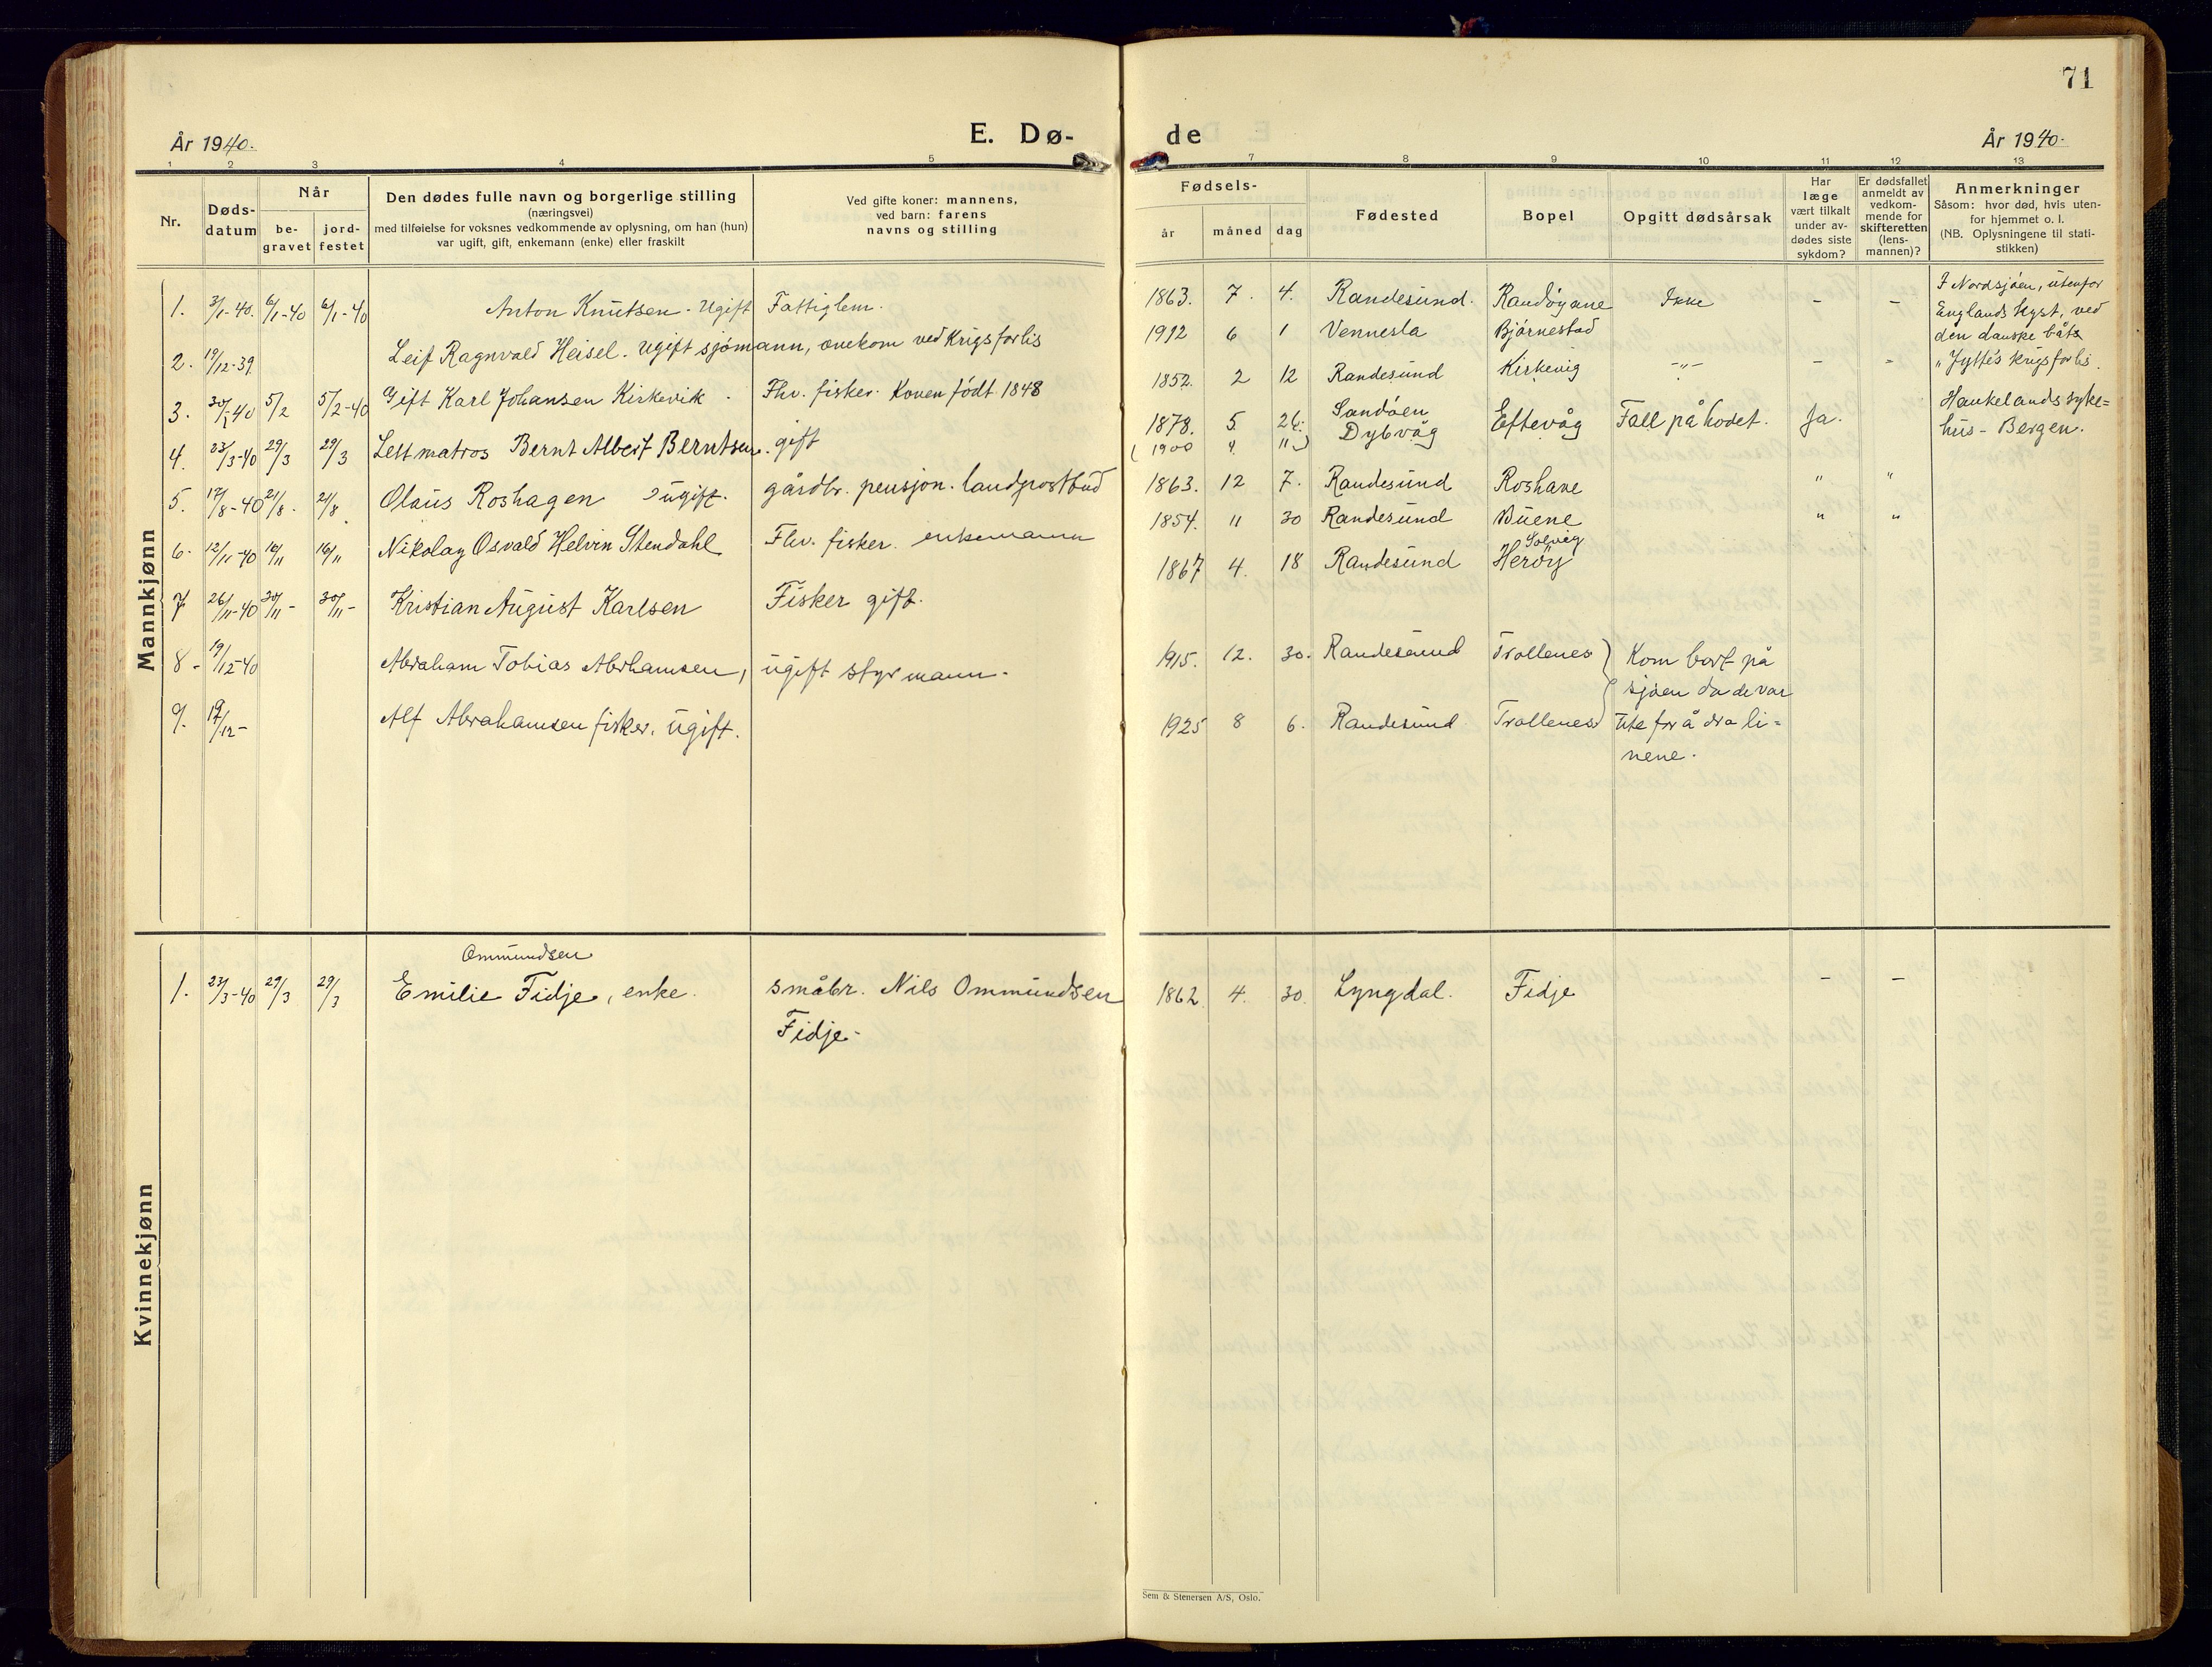 71
År 1940.
E. Dø-
de
År 1940.
1 2 3 4 5 7 8 9 10 11 12 13
Nr.
Døds-
datum
Når
be-
gravet
jord-
festet
Den dødes fulle navn og borgerlige stilling
(næringsvei)
med tilføielse for voksnes vedkommende av oplysning, om han (hun)
var ugift, gift, enkemann (enke) eller fraskilt
Ved gifte koner: mannens,
ved barn: farens
navns og stilling
Fødsels-
år
måned
dag
Fødested
Bopel
Opgitt dødsårsak
Har
læge
vært tilkalt
under av-
dødes siste
sykdom?
Er dødsfallet
anmeldt av
vedkom-
mende for
skifteretten
(lens-
mannen)?
Anmerkninger
Såsom: hvor død, hvis uten-
for hjemmet o. l.
(NB. Oplysningene til stati-
stikken)
Mannkjønn
1. 3/1-40. 6/1-40 6/1-40 Anton Knutsen. Ugift Fattiglem. 1863. 7. 4. Randesund. Randøyane Ikke - -
I Nordsjøen, utenfor
Englands kyst, ved
den danske båts
"Jyttes krigsforlis.
2. 19/12-39 Leif Ragnvald Heisel. Ugift sjømann, omkom ved Krigsforlis 1912 6 1 Vennesla Bjørnestad
3. 30/1-40 5/2 5/2-40 Gift Karl Johansen Kirkevik. Fhv. fisker. Konen født 1848 1852. 2 12 Randesund Kirkevig -"- - -
4. 23/3-40 29/3 29/3 Lettmatros Bernt Albert Berntsen. gift 1878. 5 26: Sandøen
Dybvåg Eftevåg Fall på hodet. Ja.
Haukelands syke=
hus - Bergen.
(1900 4. 11)
5. 17/8-40 21/8. 21/8. Olaus Roshagen ugift. gårdbr. pensjon. landpostbud 1863. 12 7. Randesund Roshave " "
6. 12/11-40 16/11 16/11 Nikolay Osvald Helvin Stendahl Fhv. fisker. enkemann 1854. 11 30 Randesund Buene " "
7 26/11-40 30/11- 30/11- Kristian August Karlsen Fisker gift. 1867 4. 18 Randesund Solvig
Herøy
8- 19/12-40 Abraham Tobias Abrhamsen, ugift styrmann. 1915. 12. 30. Randesund Trollenes
9. 19/12- Alf Abrahamsen fisker. ugift. 1925 8 6. Randesund Trollenes
Kom bort på
sjøen da de var
ute for å dra li=
nene.
Kvinnekjønn
Ommundsen
1. 23/3-40 29/3 29/3 Emilie Fidje, enke. småbr. Nils Ommundsen 1862. 4. 30. Lyngdal. Fidje - -
Fidje-
Sem & Stenersen A/S, Oslo.